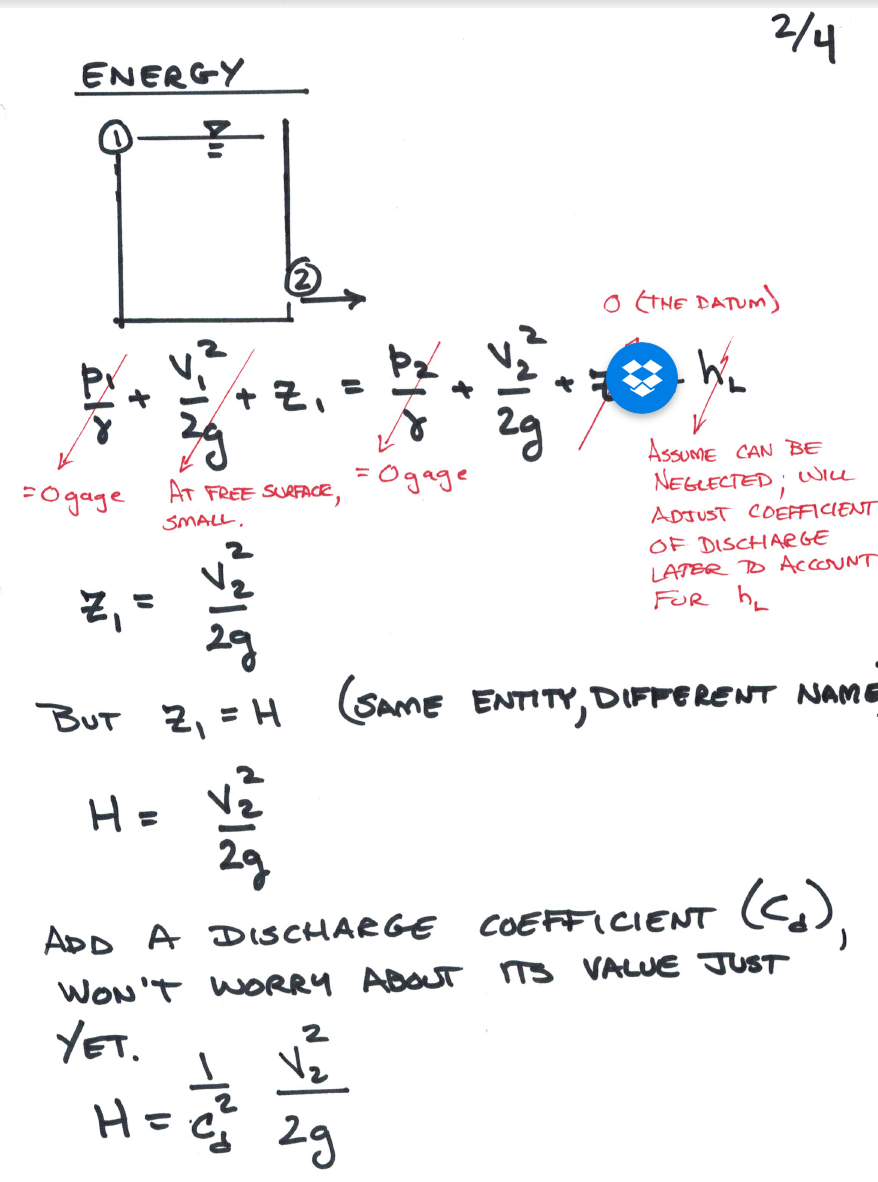 2/4
ENERGY
1
2
O (THE DATUM)
p₁/γ + V₁²/2g + Z₁ = p₂/γ + V₂²/2g + Z hL
=0 gage
AT FREE SURFACE,
SMALL.
=0 gage
ASSUME CAN BE
NEGLECTED; WILL
ADJUST COEFFICIENT
OF DISCHARGE
LATER TO ACCOUNT
FOR hL
Z₁ = V₂²/2g
BUT Z₁ = H (SAME ENTITY, DIFFERENT NAME
H = V₂²/2g
ADD A DISCHARGE COEFFICIENT (Cd),
WON'T WORRY ABOUT ITS VALUE JUST
YET.
H = 1/Cd² V₂²/2g